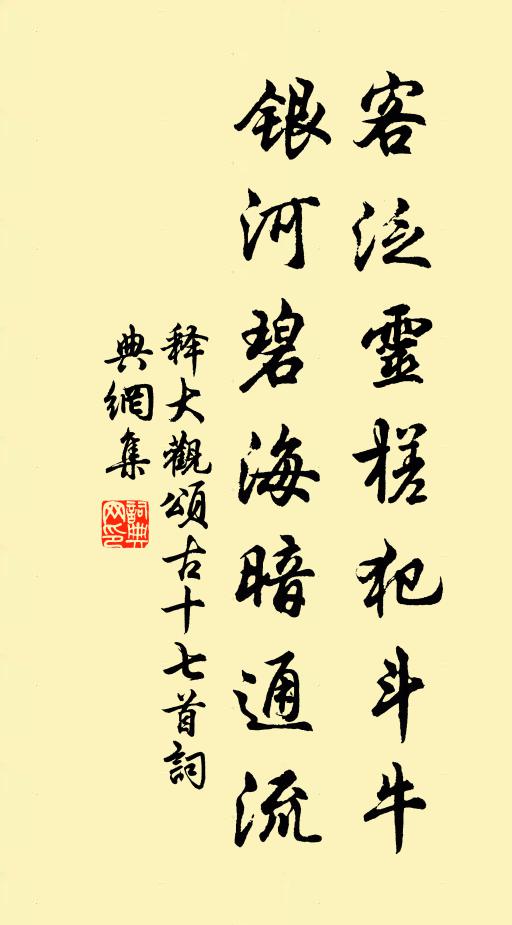 客泛靈槎犯斗牛
銀河碧海暗通流
释大觀頌古十七首詞
典網集
詞典网印